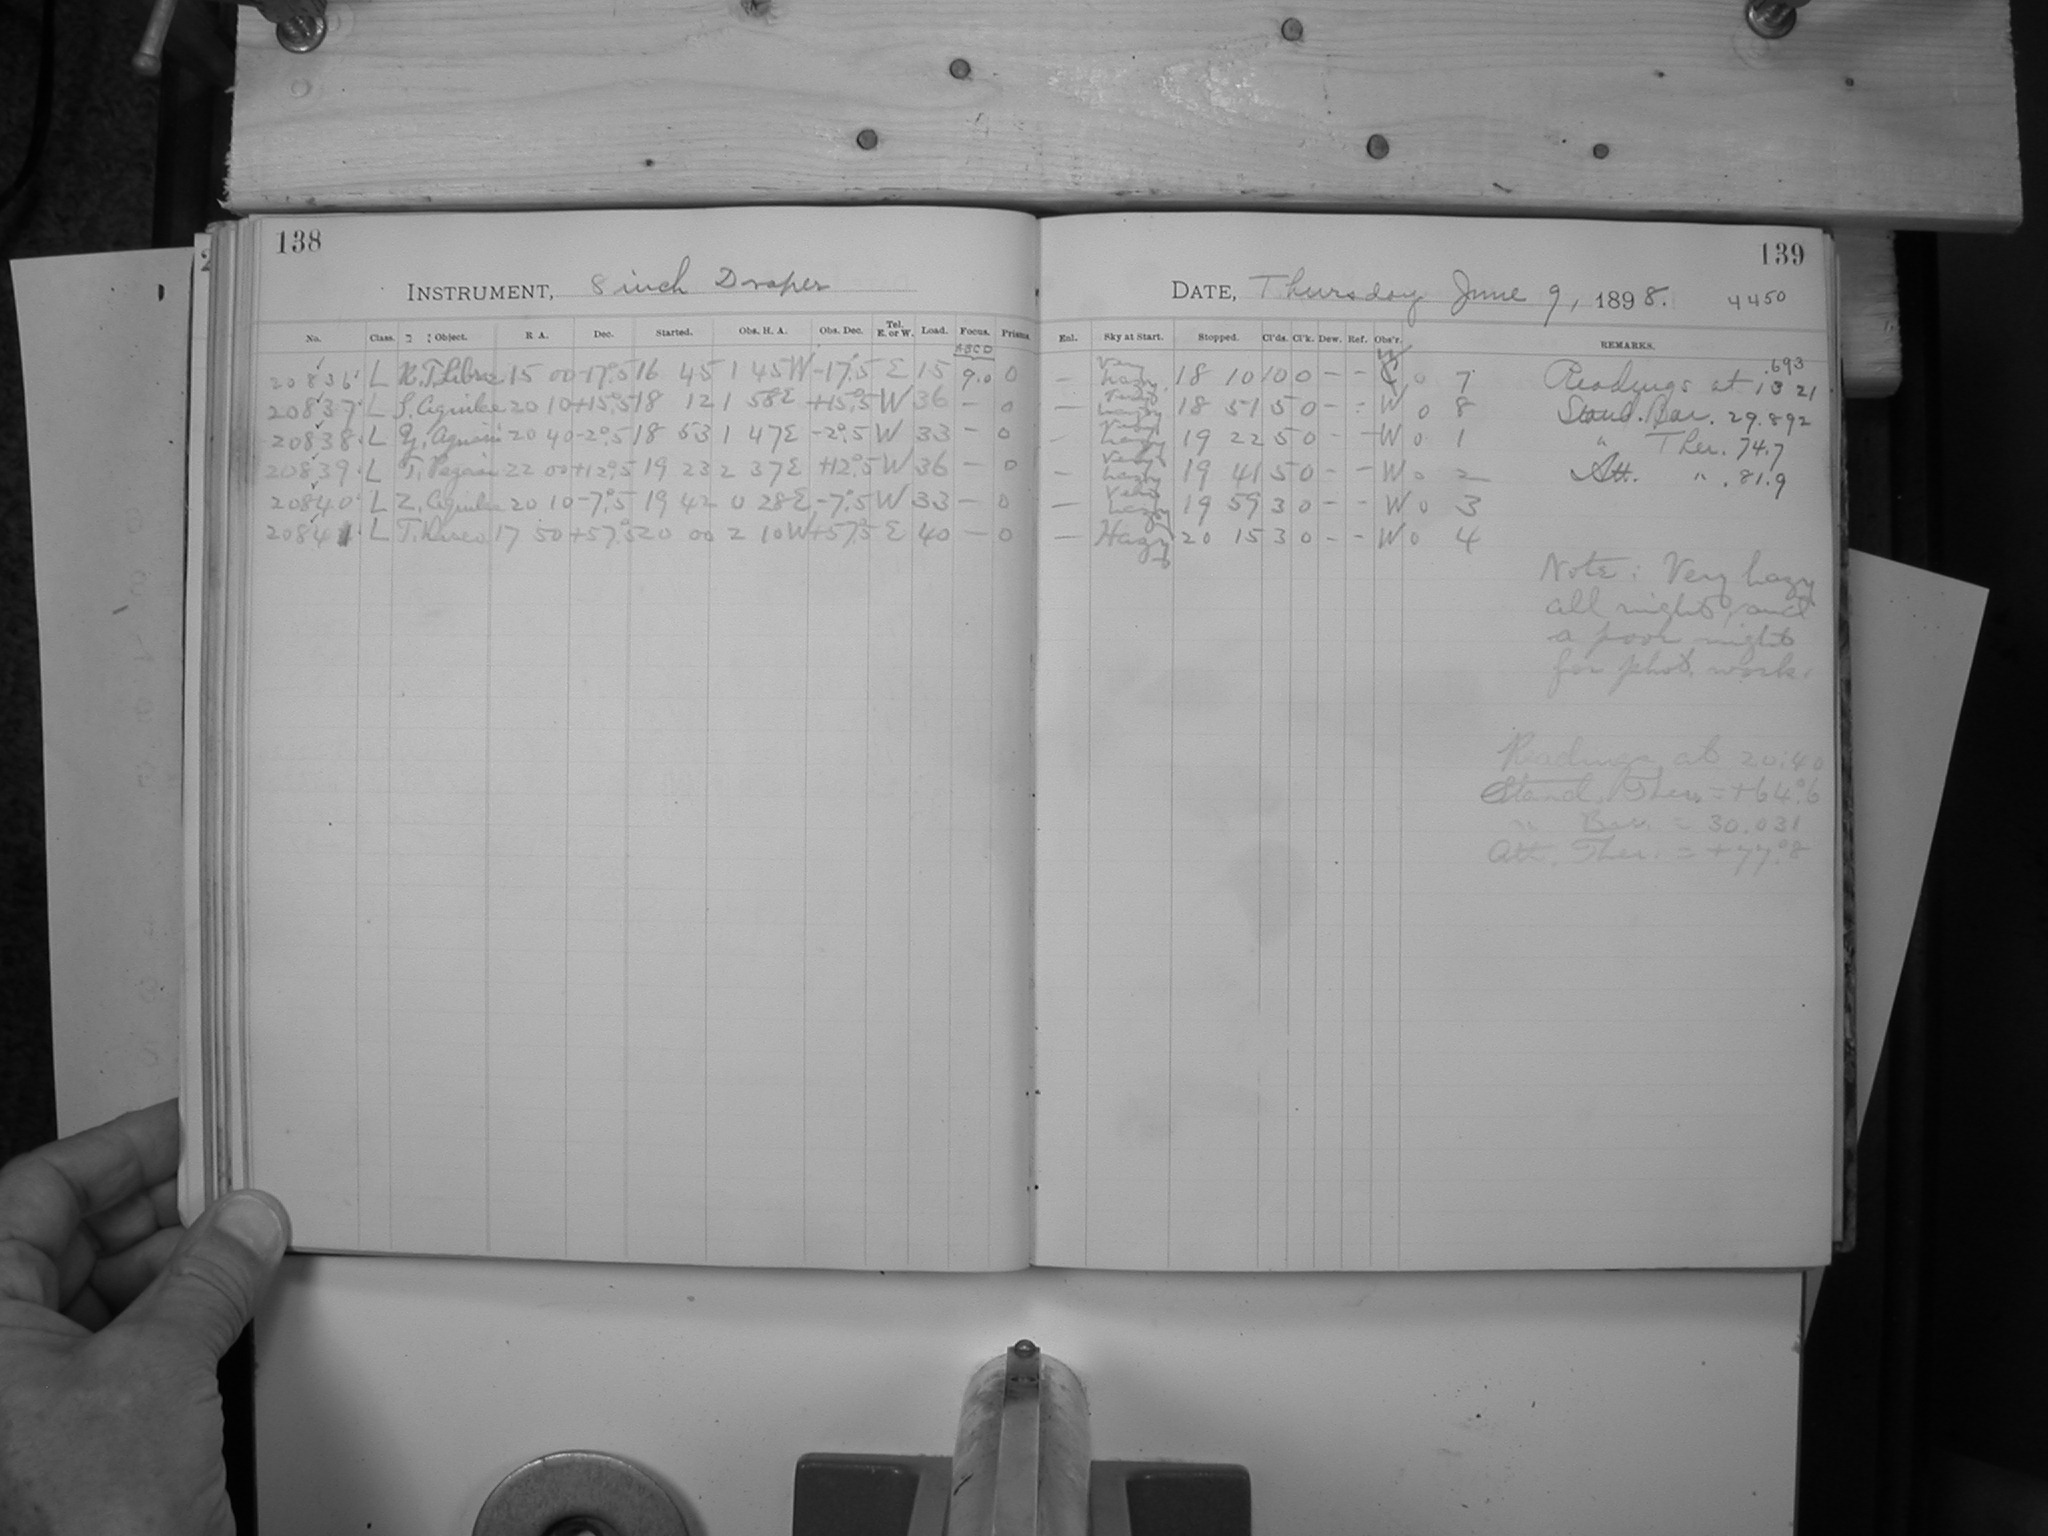 138
INSTRUMENT, 8 inch Draper
No. Class. Object. R A. Dec. Started. Obs. H. A. Obs. Dec. Tel. E. or W. Load. Focus. Prisms
ABCD
20836 L R.T. Librae 15 00 -17°.5 16 45 1 45W -17°.5 E 15 9.0 0
20837 L S. Aquilae 20 10 +15°.5 18 12 1 58E +15°.5 W 36 — 0
20838 L Y. Aquarii 20 40 -2°.5 18 53 1 47E -2°.5 W 33 — 0
20839 L T. Pegasi 22 00 +12°.5 19 23 2 37E +12°.5 W 36 — 0
20840 L Z. Aquilae 20 10 -7°.5 19 42 0 28E -7°.5 W 33 — 0
20841 L T. Draco 17 50 +57°.5 20 00 2 10W +57°.5 E 40 — 0
139
DATE, Thursday June 9, 1898. 4450
Enl. Sky at Start. Stopped. Cl'ds. Cl'k. Dew. Ref. Obs'r. REMARKS.
— Very hazy 18 10 10 0 - - 0 7
— Very hazy 18 51 5 0 - - W 0 8
— Very hazy 19 22 5 0 - - W 0 1
— Very hazy 19 41 5 0 - - W 0 2
— Very hazy 19 59 3 0 - - W 0 3
— Hazy 20 15 3 0 - - W 0 4
.693
Readings at 13 21
Stand. Bar. 29.892
" Ther. 74.7
Att. " . 81.9
Note: Very hazy
all night, and
a poor night
for phot. work.
Readings at 20:40
Stand. Ther. = +64°.6
" Bar. = 30.031
Att. Ther. = +77°.8